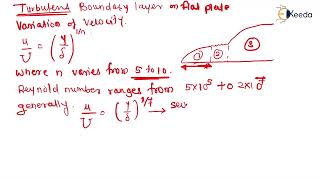 Turbulent Boundary layer on flat plate
Ekeeda
Variation of velocity.
u/U = (y/δ)^1/n
① ② ③
where n varies from 5 to 10.
Reynold number ranges from 5×10^5 to 2×10^7
generally. u/U = (y/δ)^1/7 →